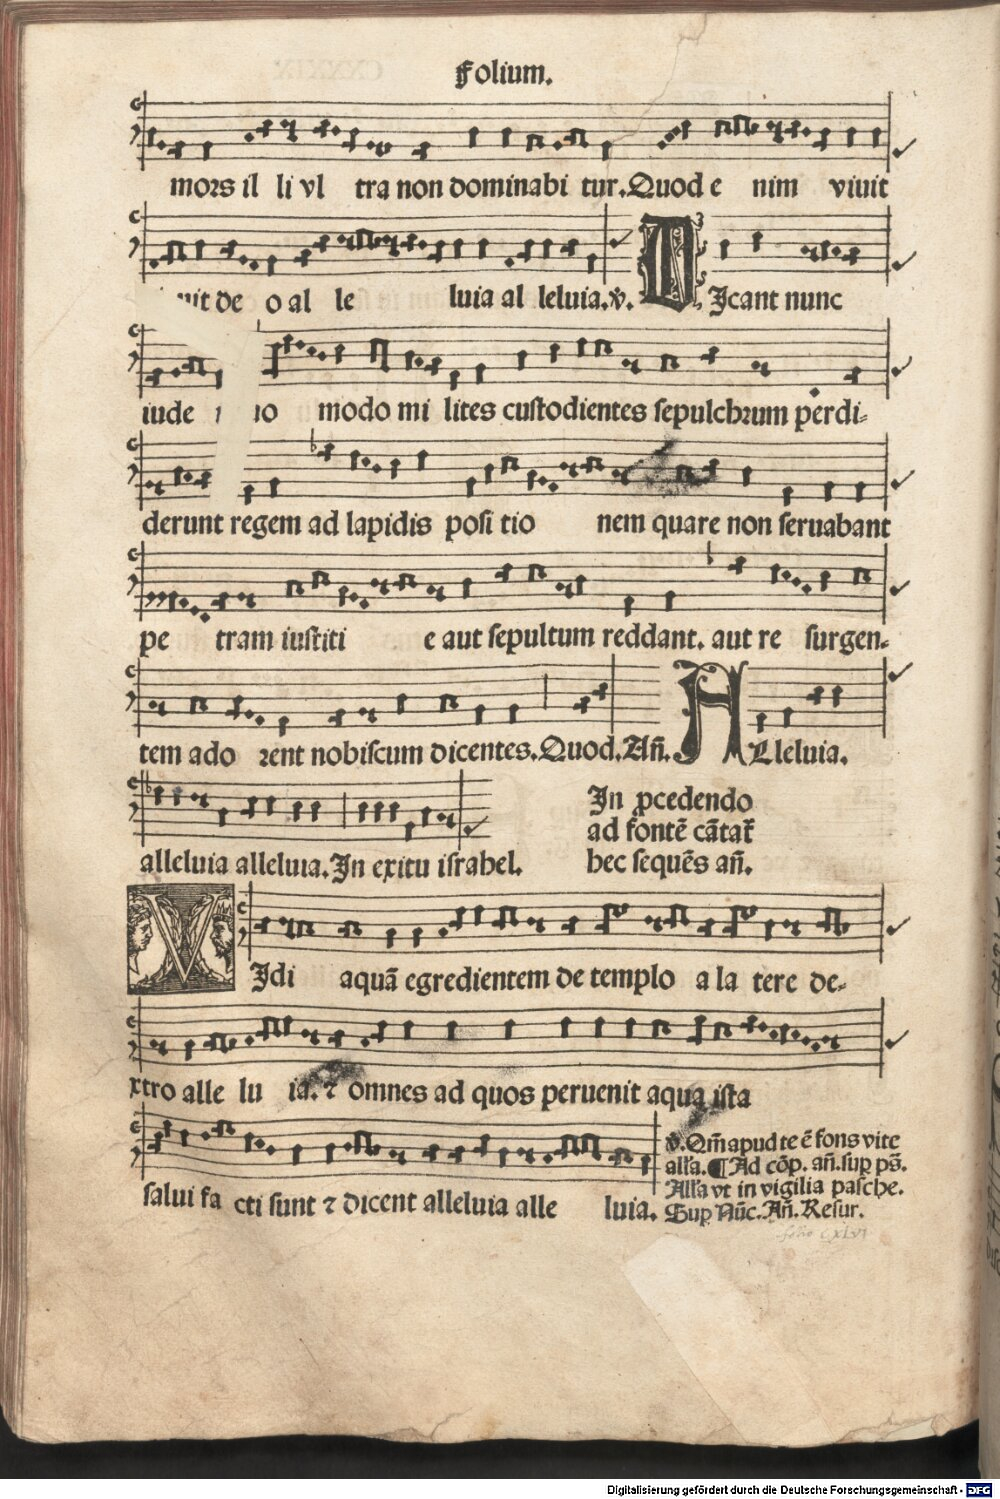 Folium.
mors il li vl tra non dominabi tur. Quod e nim viuit
uit de o al le luia al leluia. v̄. DIcant nunc
iude modo mi lites custodientes sepulchrum perdi-
derunt regem ad lapidis posi tio nem quare non seruabant
pe tram iustiti e aut sepultum reddant. aut re surgen-
tem ado rent nobiscum dicentes. Quod. Añ. ALleluia.
alleluia alleluia. In exitu israhel.
In ꝓcedendo
ad fontē cātat̄
hec sequēs añ.
VIdi aquā egredientem de templo a la tere de-
xtro alle lu ia. ⁊ omnes ad quos peruenit aqua ista
salui fa cti sunt ⁊ dicent alleluia alle luia.
v̄. Qm̄ apud te ē fons vite
all'a. ¶ Ad cōp. añ. sup ps̄.
All'a vt in vigilia pasche.
Sup Nūc. Añ. Resur.
folio cxlvi
Digitalisierung gefördert durch die Deutsche Forschungsgemeinschaft - DFG